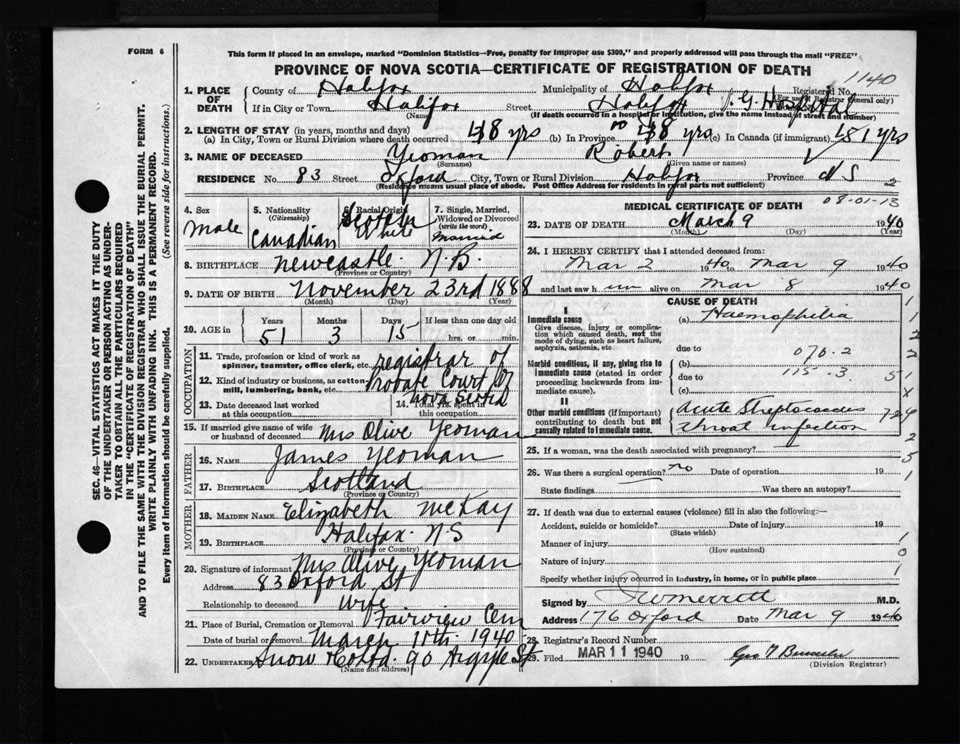 FORM 6
This form if placed in an envelope, marked "Dominion Statistics—Free, penalty for improper use $300," and properly addressed will pass through the mail "FREE"
PROVINCE OF NOVA SCOTIA—CERTIFICATE OF REGISTRATION OF DEATH
1140
SEC. 46—VITAL STATISTICS ACT MAKES IT THE DUTY
OF THE UNDERTAKER OR PERSON ACTING AS UNDER-
TAKER TO OBTAIN ALL THE PARTICULARS REQUIRED
IN THE "CERTIFICATE OF REGISTRATION OF DEATH"
AND TO FILE THE SAME WITH THE DIVISION REGISTRAR WHO SHALL ISSUE THE BURIAL PERMIT.
WRITE PLAINLY WITH UNFADING INK. THIS IS A PERMANENT RECORD.
Every item of information should be carefully supplied. (See reverse side for instructions.)
1. PLACE OF DEATH County of Halifax Municipality of Halifax Registered No.
(For use of Registrar General only)
If in City or Town Halifax Street Halifax V.G. Hospital
(Name) (If death occurred in a hospital or institution, give the name instead of street and number)
2. LENGTH OF STAY (in years, months and days)
(a) In City, Town or Rural Division where death occurred 48 yrs (b) In Province 48 yrs (c) In Canada (if immigrant) 51 yrs
3. NAME OF DECEASED Yeoman Robert
(Surname) (Given name or names)
RESIDENCE No. 83 Street Oxford City, Town or Rural Division Halifax Province N S
(Residence means usual place of abode. Post Office Address for residents in rural parts not sufficient)
4. Sex Male
5. Nationality (Citizenship) Canadian
6. Racial Origin Scotch White
7. Single, Married, Widowed or Divorced (write the word) Married
8. BIRTHPLACE Newcastle N.B.
(Province or Country)
9. DATE OF BIRTH November 23rd 1888
(Month) (Day) (Year)
10. AGE in Years 51 Months 3 Days 15 If less than one day old
hrs. or min.
OCCUPATION
11. Trade, profession or kind of work as spinner, teamster, office clerk, etc. registrar of
12. Kind of industry or business, as cotton mill, lumbering, bank, etc. Probate Court of
Nova Scotia
13. Date deceased last worked at this occupation
14. Total yrs. spent in this occupation.
15. If married give name of wife or husband of deceased Mrs Olive Yeoman
FATHER
16. NAME James Yeoman
17. BIRTHPLACE Scotland
(Province or Country)
MOTHER
18. MAIDEN NAME Elizabeth McKay
19. BIRTHPLACE Halifax N S
(Province or Country)
20. Signature of informant Mrs Olive Yeoman
Address 83 Oxford St
Relationship to deceased Wife
21. Place of Burial, Cremation or Removal Fairview Cem
Date of burial or removal March 11th 1940
22. UNDERTAKER Snow & Co Ltd. 90 Argyle St
(Name and address)
08-01-13
MEDICAL CERTIFICATE OF DEATH
23. DATE OF DEATH March 9 1940
(Month) (Day) (Year)
24. I HEREBY CERTIFY that I attended deceased from:
Mar 2 1940 to Mar 9 1940
and last saw him alive on Mar 8 1940
CAUSE OF DEATH
I
Immediate cause
Give disease, injury or complication which caused death, not the mode of dying, such as heart failure, asphyxia, asthenia, etc.
(a) Haemophilia
due to
Morbid conditions, if any, giving rise to immediate cause (stated in order proceeding backwards from immediate cause).
(b) 070-2
due to 115-3
(c)
II
Other morbid conditions (if important) contributing to death but not causally related to Immediate cause.
Acute Streptococcus
throat infection
25. If a woman, was the death associated with pregnancy?
26. Was there a surgical operation? no Date of operation 19
State findings Was there an autopsy?
27. If death was due to external causes (violence) fill in also the following:—
Accident, suicide or homicide? Date of injury 19
(State which)
Manner of injury
(How sustained)
Nature of injury
Specify whether injury occurred in industry, in home, or in public place
Signed by J W Merritt M.D.
Address 176 Oxford Date Mar 9 1940
28. Registrar's Record Number
29. Filed MAR 11 1940 19
(Division Registrar)